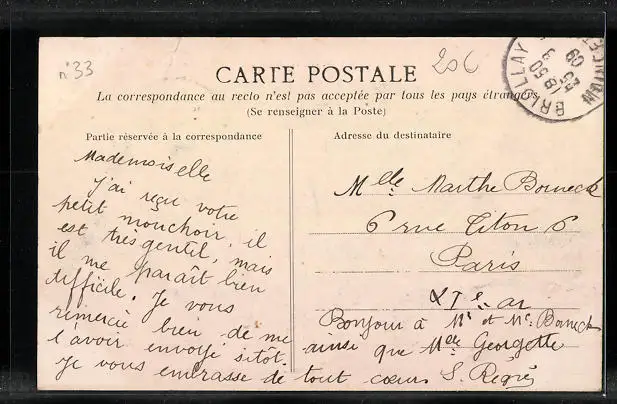 n°33
20c
CARTE POSTALE
La correspondance au recto n'est pas acceptée par tous les pays étrangers
(Se renseigner à la Poste)
Partie réservée à la correspondance
Adresse du destinataire
Mademoiselle
j'ai reçu votre
petit mouchoir, il
est très gentil, mais
il me paraît bien
difficile. Je vous
remercie bien de me
l'avoir envoyé sitôt.
Je vous embrasse de tout cœur S. Regris
Melle Marthe Borneck
6 rue Titon 6
Paris
XIe ar
Bonjour à Mr et Me Borneck
ainsi que Melle Georgette
BRIOLLAY